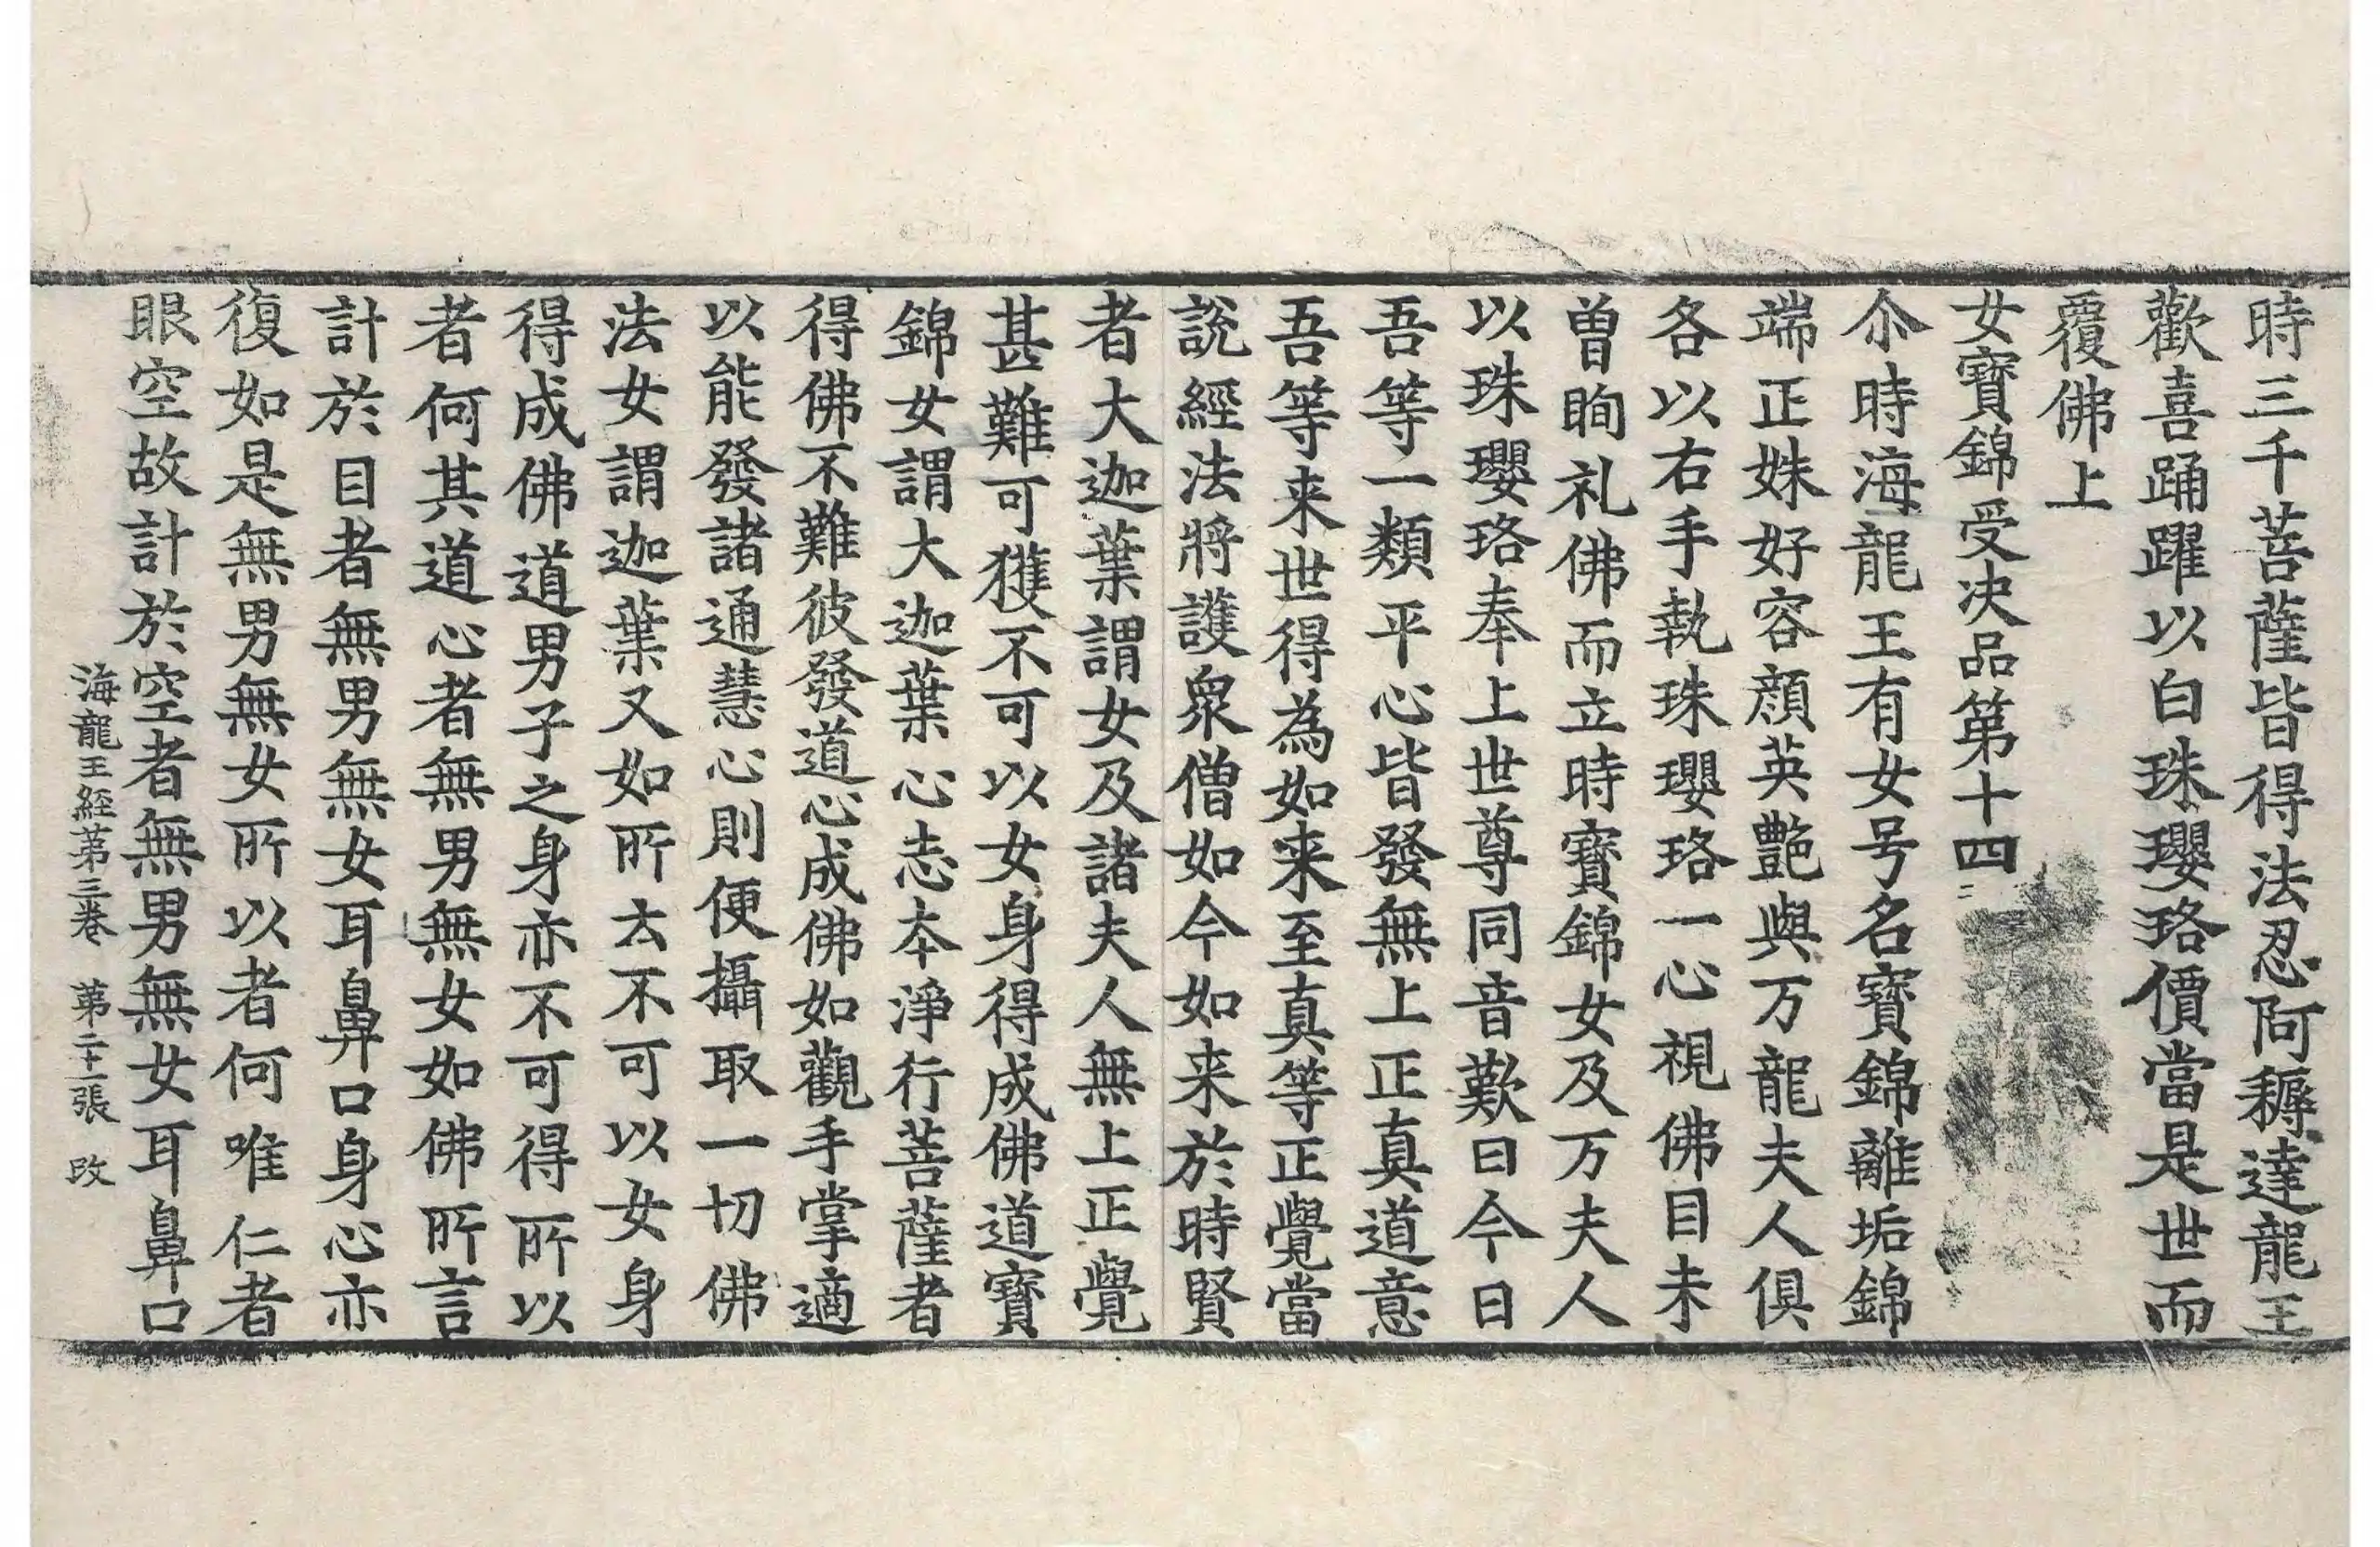 時三千菩薩皆得法忍阿耨達龍王
歡喜踊躍以白珠瓔珞價當是世而
覆佛上
女寶錦受决品第十四
尒時海龍王有女号名寶錦離垢錦
端正姝好容顔英艶與万龍夫人俱
各以右手執珠瓔珞一心視佛目未
曽眴礼佛而立時寶錦女及万夫人
以珠瓔珞奉上世尊同音歎曰今日
吾等一類平心皆發無上正真道意
吾等来世得為如来至真等正覺當
說經法將護衆僧如今如来於時賢
者大迦葉謂女及諸夫人無上正覺
甚難可獲不可以女身得成佛道寶
錦女謂大迦葉心志本淨行菩薩者
得佛不難彼發道心成佛如觀手掌適
以能發諸通慧心則便攝取一切佛
法女謂迦葉又如所云不可以女身
得成佛道男子之身亦不可得所以
者何其道心者無男無女如佛所言
計於目者無男無女耳鼻口身心亦
復如是無男無女所以者何唯仁者
眼空故計於空者無男無女耳鼻口
海龍王經第三卷 第二十一張 改